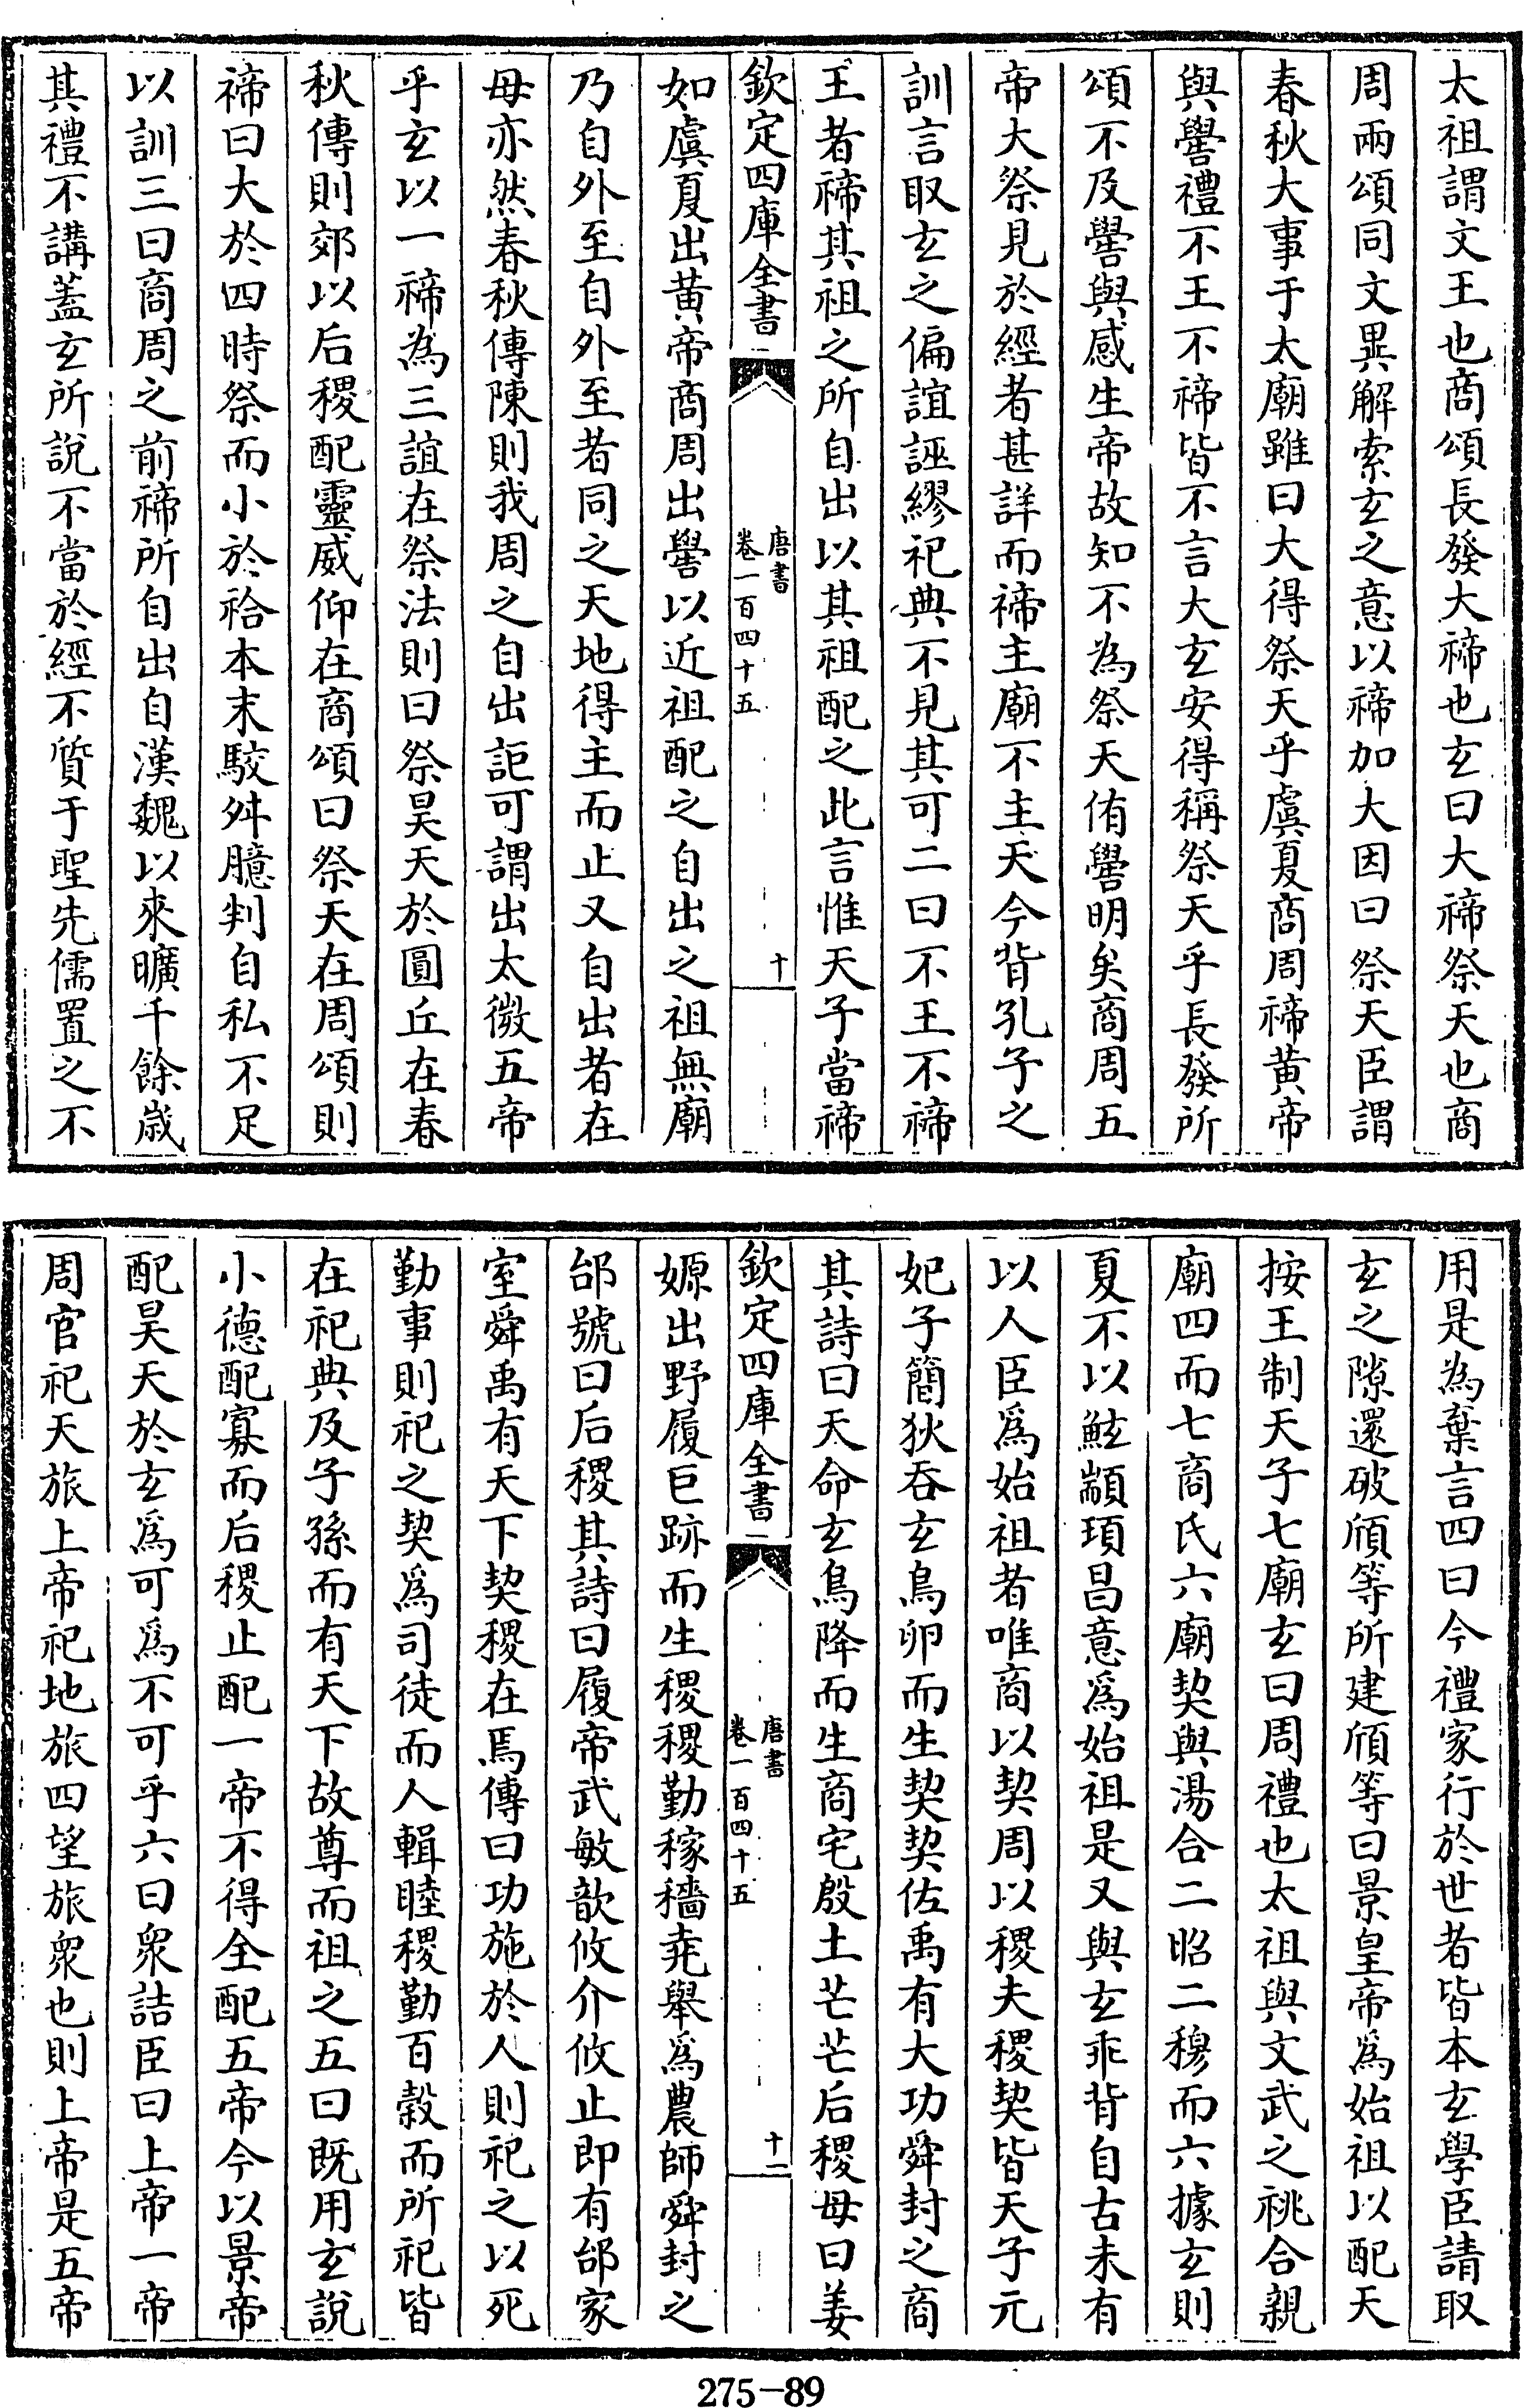 太祖謂文王也商頌長發大禘也玄曰大禘祭天也商
周兩頌同文異解索玄之意以禘加大因曰祭天臣謂
春秋大事于太廟雖曰大得祭天乎虞夏商周禘黄帝
與嚳禮不王不禘皆不言大玄安得稱祭天乎長發所
頌不及嚳與感生帝故知不為祭天侑嚳明矣商周五
帝大祭見於經者甚詳而禘主廟不主天今背孔子之
訓言取玄之偏誼誣繆祀典不見其可二曰不王不禘
王者禘其祖之所自出以其祖配之此言惟天子當禘
欽定四庫全書
唐書
卷一百四十五
十
如虞夏出黄帝商周出嚳以近祖配之自出之祖無廟
乃自外至自外至者同之天地得主而止又自出者在
母亦然春秋傳陳則我周之自出詎可謂出太微五帝
乎玄以一禘為三誼在祭法則曰祭昊天於圓丘在春
秋傳則郊以后稷配靈威仰在商頌曰祭天在周頌則
禘曰大於四時祭而小於祫本末駮舛臆判自私不足
以訓三曰商周之前禘所自出自漢魏以來曠千餘歲
其禮不講蓋玄所說不當於經不質于聖先儒置之不
用是為棄言四曰今禮家行於世者皆本玄學臣請取
玄之隙還破頎等所建頎等曰景皇帝爲始祖以配天
按王制天子七廟玄曰周禮也太祖與文武之祧合親
廟四而七商氏六廟契與湯合二昭二穆而六據玄則
夏不以鮌顓頊昌意爲始祖是又與玄乖背自古未有
以人臣爲始祖者唯商以契周以稷夫稷契皆天子元
妃子簡狄吞玄鳥卵而生契契佐禹有大功舜封之商
其詩曰天命玄鳥降而生商宅殷土芒芒后稷母曰姜
欽定四庫全書
唐書
卷一百四十五
十一
嫄出野履巨跡而生稷稷勤稼穡堯舉爲農師舜封之
邰號曰后稷其詩曰履帝武敏歆攸介攸止即有邰家
室舜禹有天下契稷在焉傳曰功施於人則祀之以死
勤事則祀之契爲司徒而人輯睦稷勤百穀而所祀皆
在祀典及子孫而有天下故尊而祖之五曰既用玄說
小德配寡而后稷止配一帝不得全配五帝今以景帝
配昊天於玄爲可爲不可乎六曰衆詰臣曰上帝一帝
周官祀天旅上帝祀地旅四望旅衆也則上帝是五帝
275-89